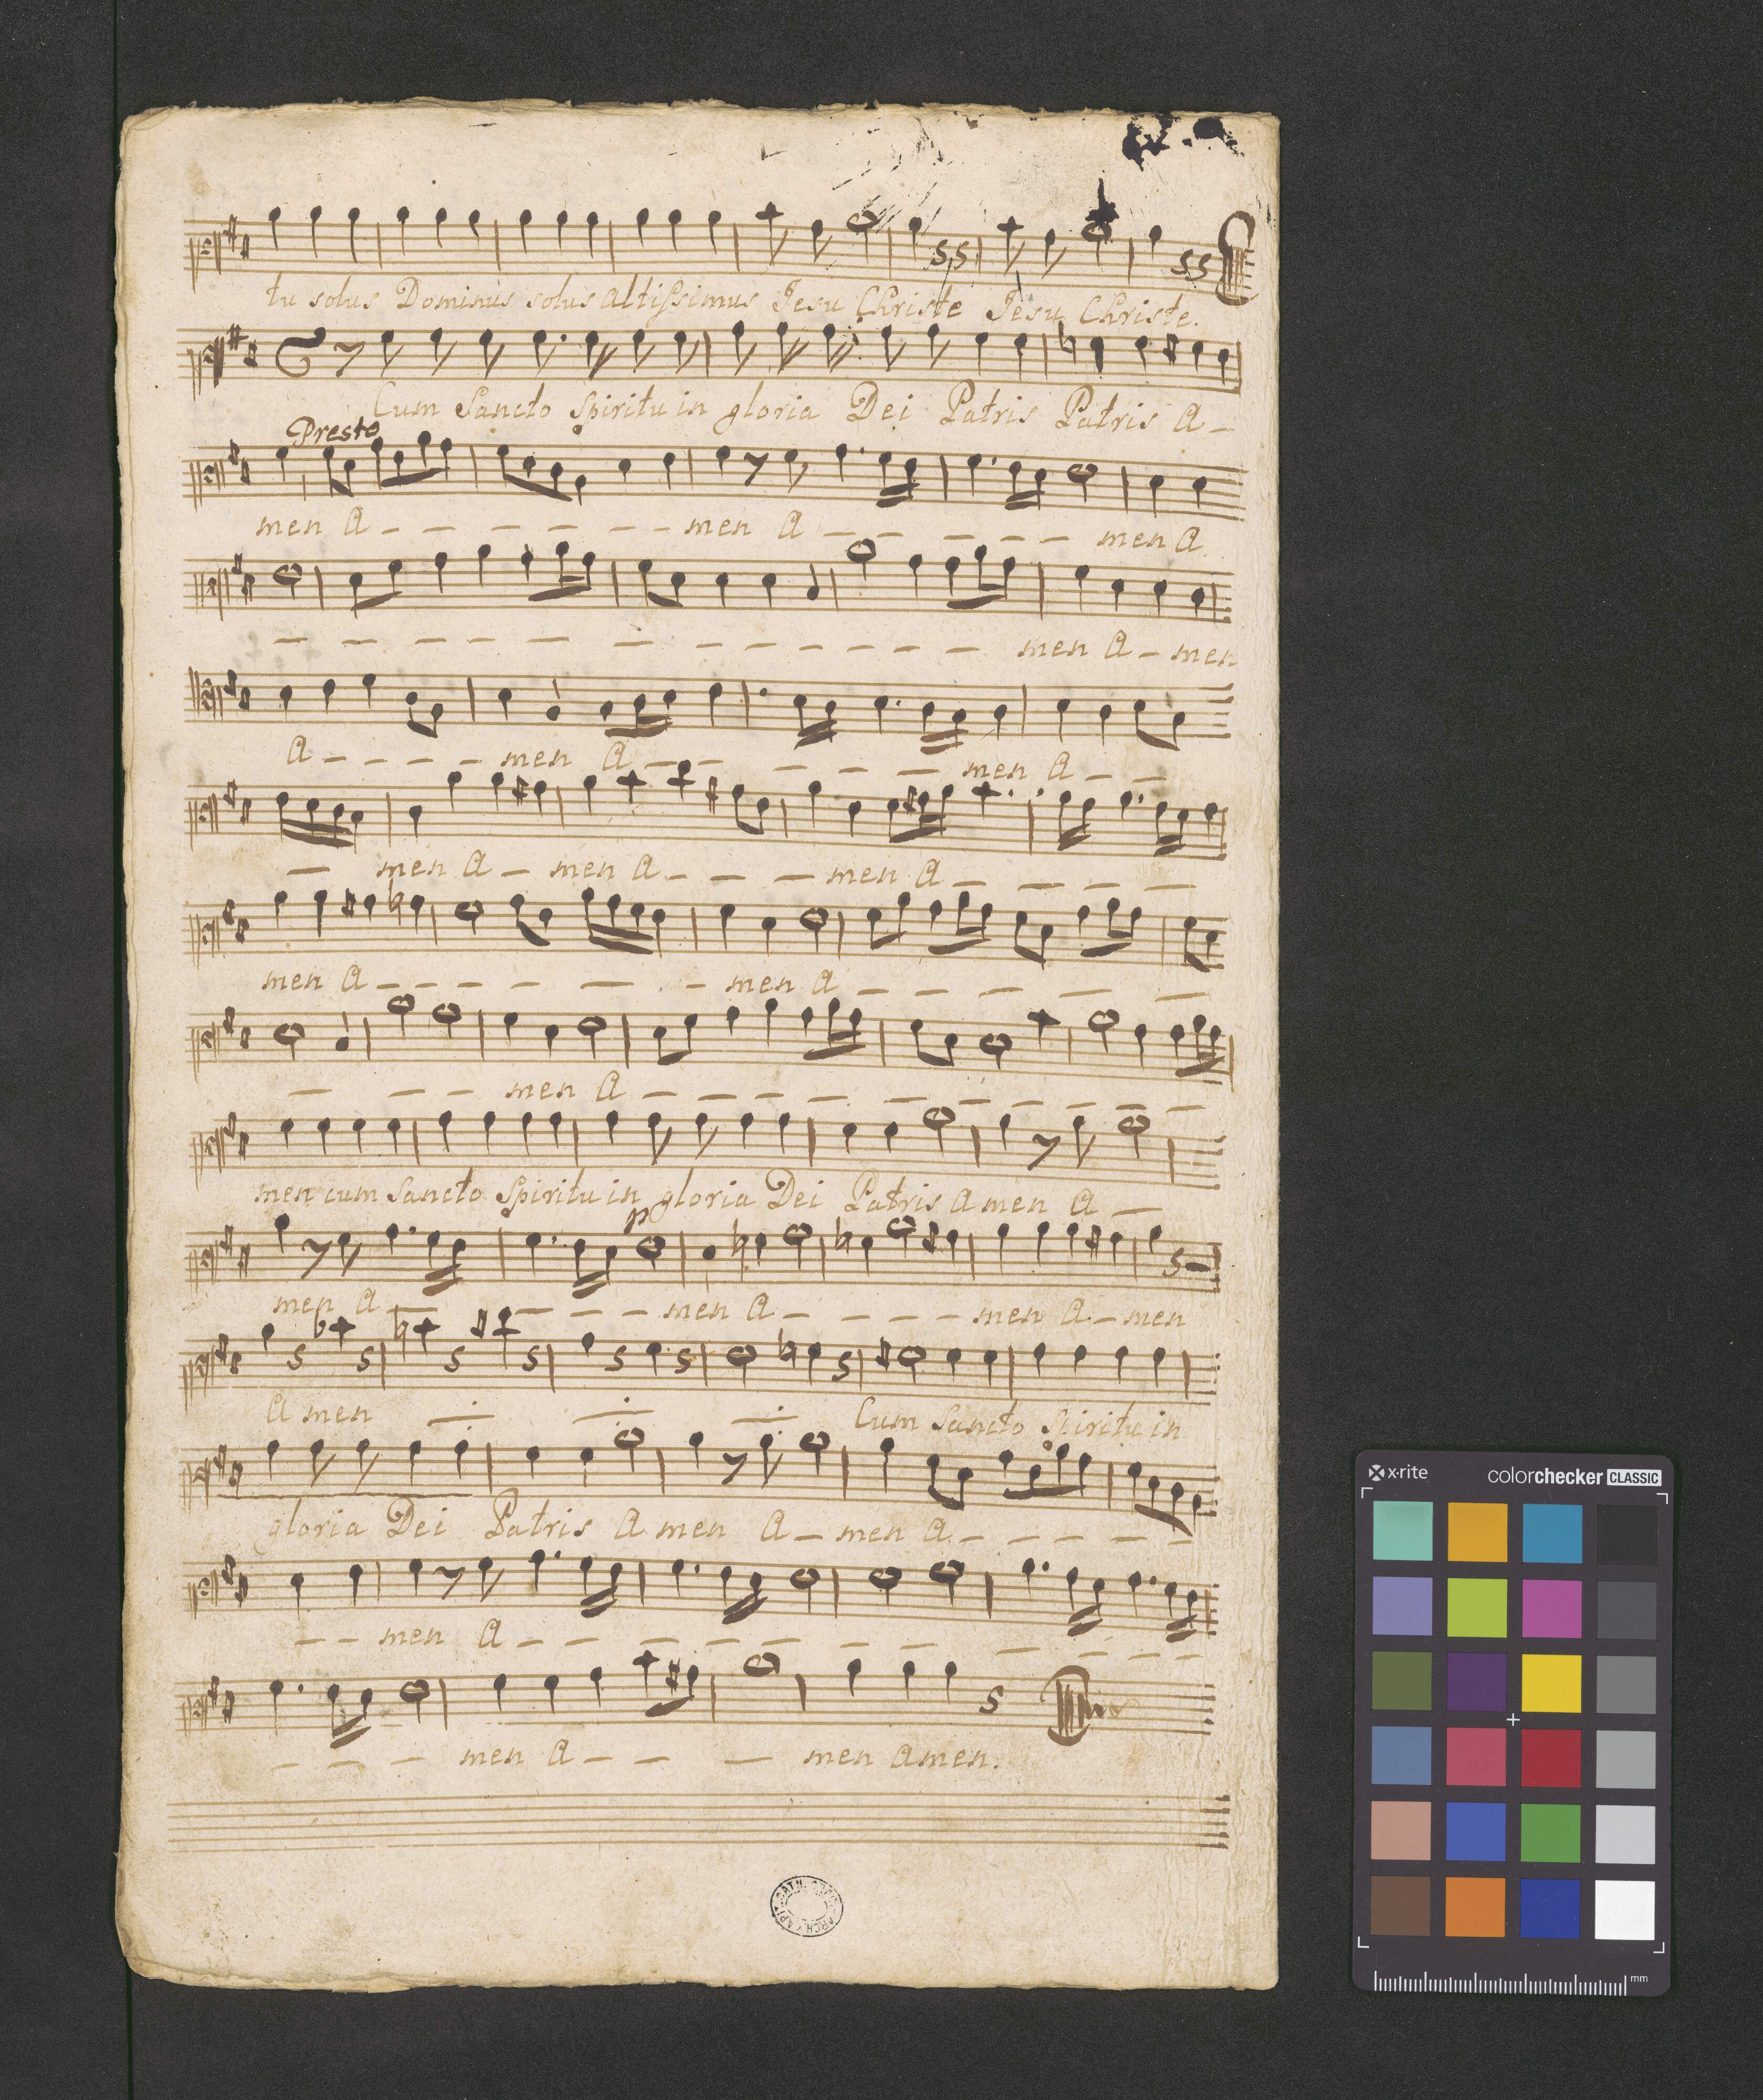 tu solus Dominus solus altissimus Jesu Christe Jesu Christe.
Cum Sancto Spiritu in gloria Dei Patris Patris A –
Presto
men A – – – – – – men A – – – – – men A
– – – – – – – – – – – – men A – men
A – – – – men A – – – – – men A – –
– men A – men A – – – men A – – – –
men A – – – – – – men A – – – – –
– – – men A – – – – – – – – – –
men cum Sancto Spiritu in gloria Dei Patris A men A –
p
men A – – – – men A – – – – – men A – men
A men Cum Sancto Spiritu in
gloria Dei Patris A men A – men A – – – – –
– – men A – – – – – – – – – –
– – – men A – – – men A men.
x·rite colorchecker CLASSIC
mm